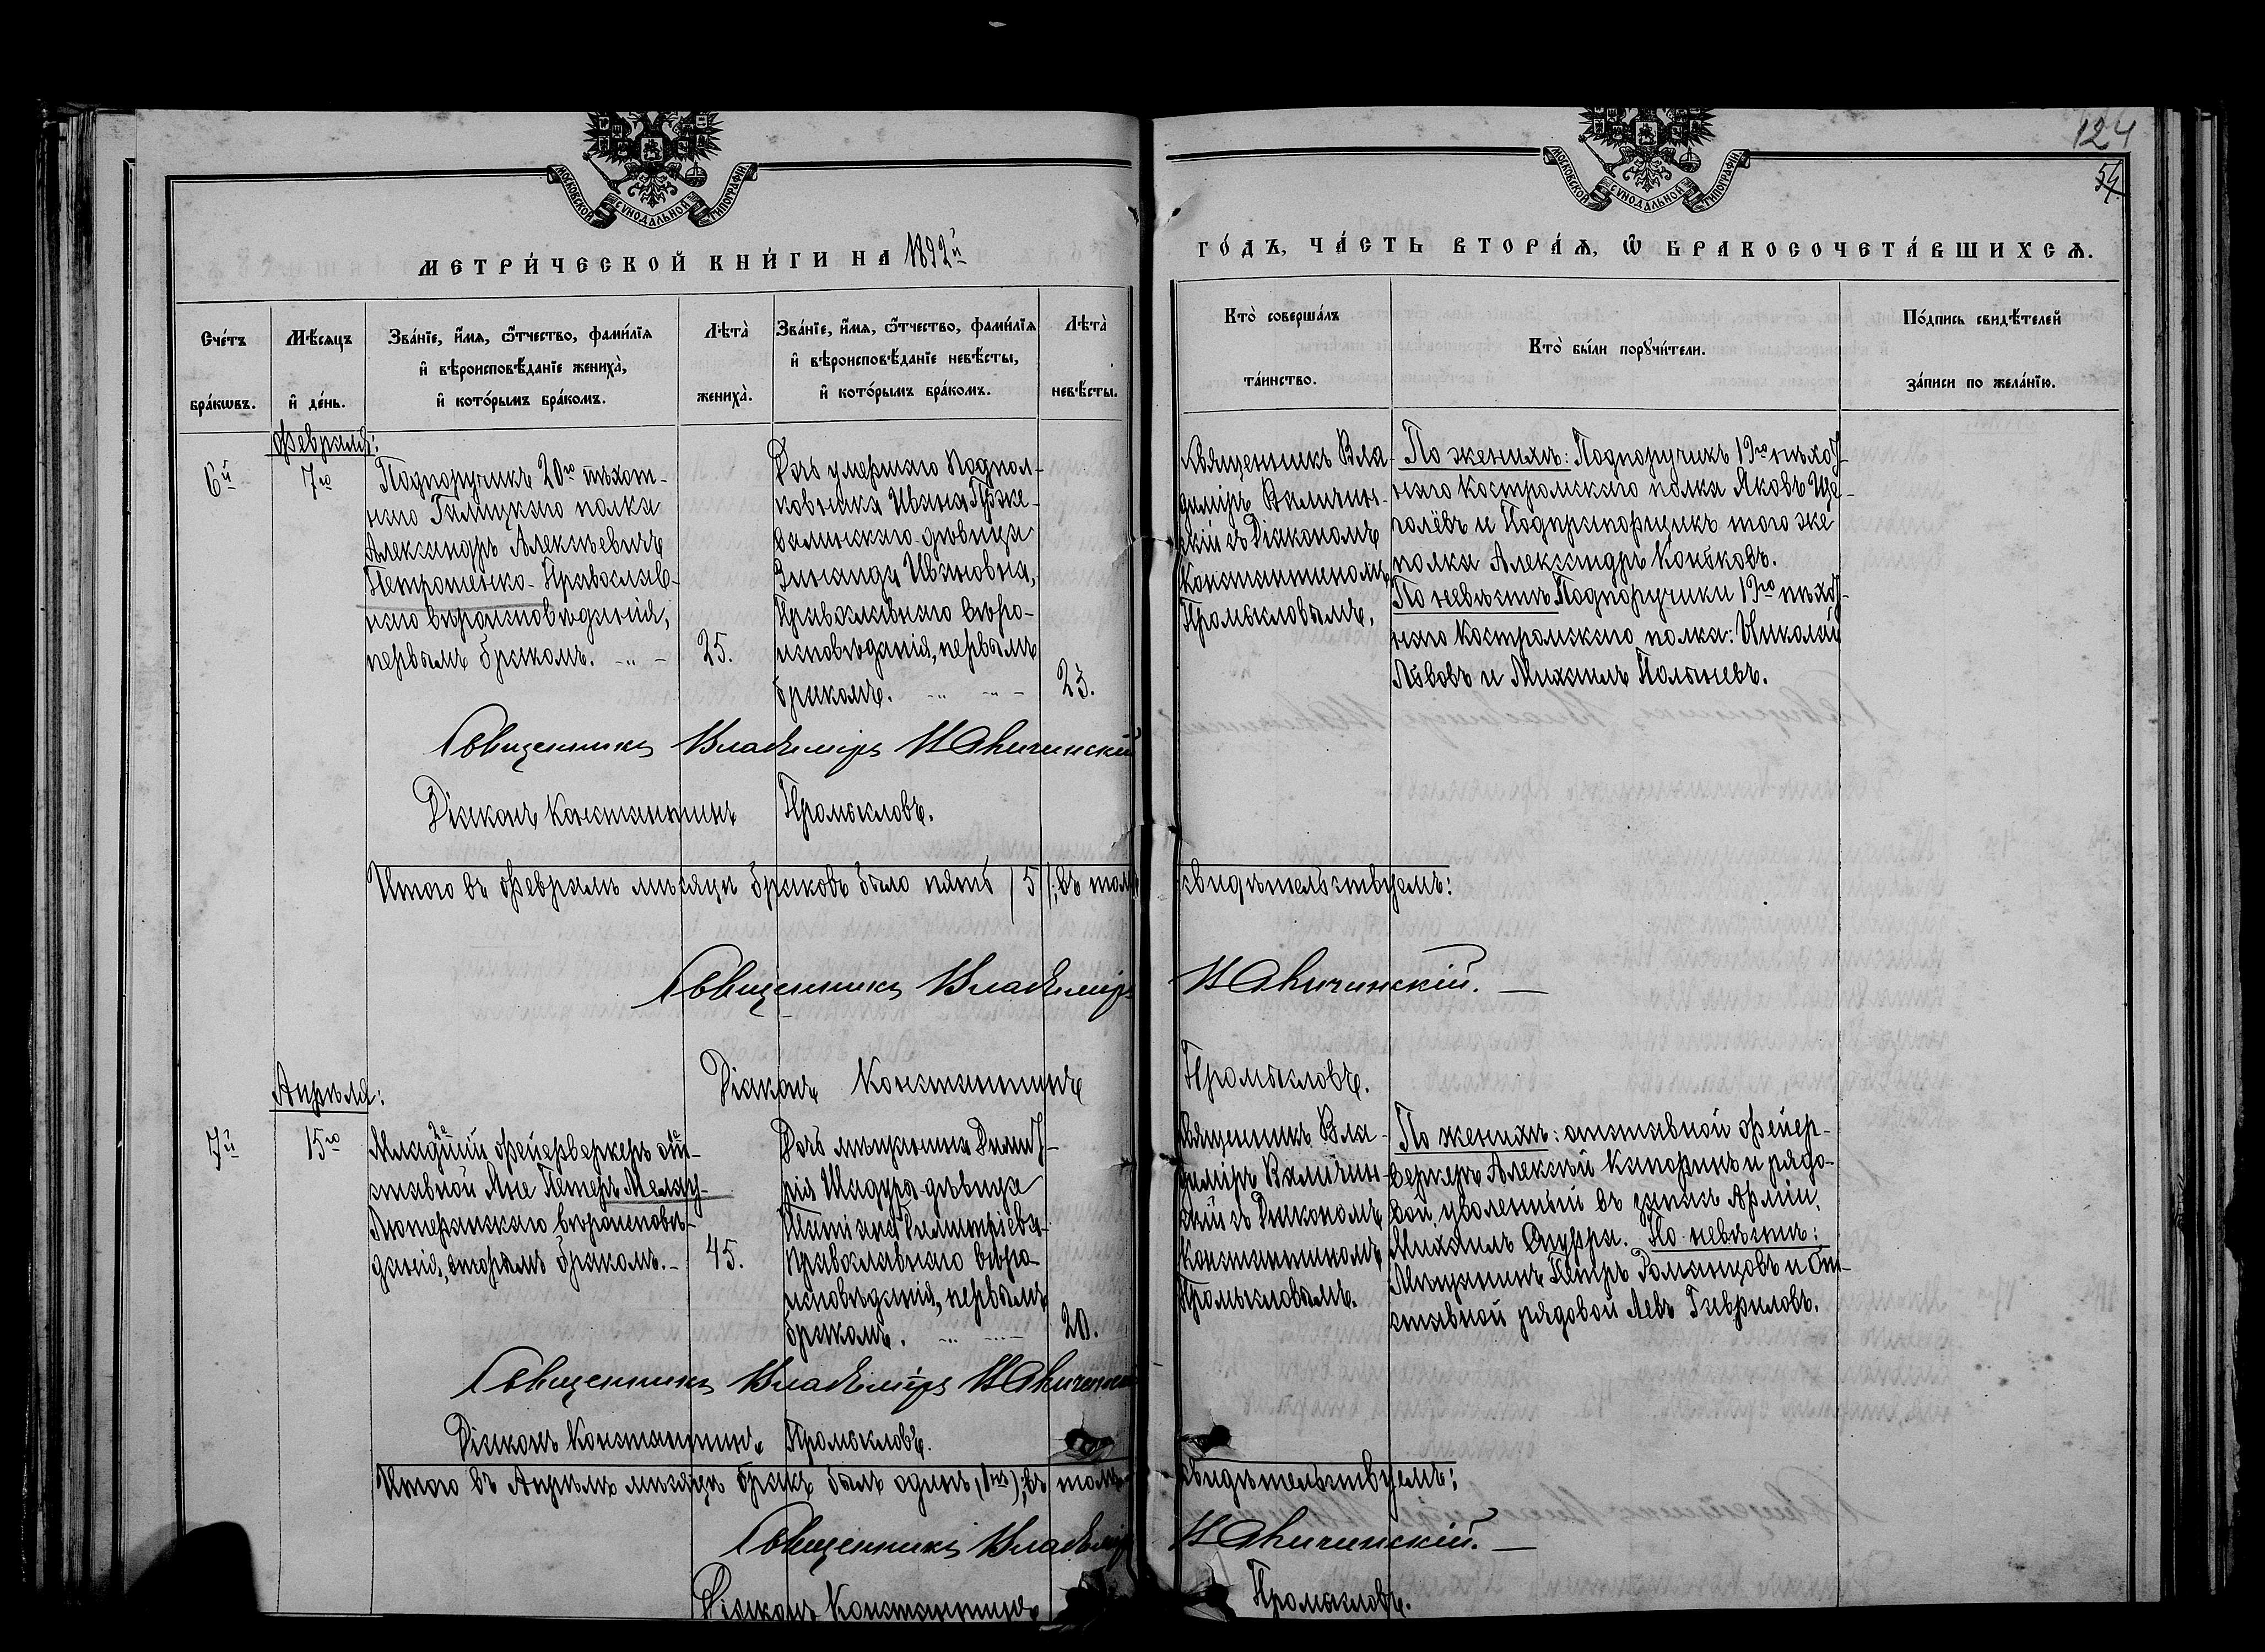 124
54
МОСКОВСКОЙ СѴНОДАЛЬНОЙ ТИПОГРАФІИ
МОСКОВСКОЙ СѴНОДАЛЬНОЙ ТИПОГРАФІИ
МЕТРИ́ЧЕСКОЙ КНИ́ГИ НА 1892й
ГО́ДЪ, ЧА́СТЬ ВТОРА́Ѧ, Ѽ БРАКОСОЧЕТА́ВШИХСѦ.
Сче́тъ бра́кѡвъ.
Мѣ́сяцъ и҆ де́нь.
Зва́нїе, и҆́мѧ, ѻ҆́тчество, фами́лїѧ
и҆ вѣроисповѣ́данїе жениха̀,
и҆ кото́рымъ бра́комъ.
Лѣта̀ жениха̀.
Зва́нїе, и҆́мѧ, ѻ҆́тчество, фами́лїѧ
и҆ вѣроисповѣ́данїе невѣ́сты,
и҆ кото́рымъ бра́комъ.
Лѣта̀ невѣ́сты.
Кто̀ соверша́лъ
та́инство.
Кто̀ бы́ли порꙋчи́тели.
По́дпись свидѣ́телей
за́писи по жела́нїю.
Февраля:
6й
7го
Подпоручикъ 20го пѣхот-
наго Галицкаго полка
Александръ Алексѣевичъ
Петрошенко - Православ-
наго вѣроисповѣданія,
первымъ бракомъ.
25.
Дочь умершаго Подпол-
ковника Ивана Прже-
валинскаго дѣвица
Зинаида Ивановна,
Православнаго вѣро-
исповѣданія, первымъ
бракомъ.
23.
Священникъ Вла-
диміръ Валичин-
скій съ Діакономъ
Константиномъ
Промысловымъ,
По женихѣ: Подпоручикъ 19го пѣхот-
наго Костромскаго полка Яковъ Ще-
голёвъ и Подпрапорщикъ того же
полка Александръ Коньковъ.
По невѣстѣ: Подпоручики 19го пѣхот-
наго Костромскаго полка: Николай
Львовъ и Михаилъ Полыневъ.
Священникъ Владиміръ Валичинскій
Діаконъ Константинъ Промысловъ.
Итого въ Февралѣ мѣсяцѣ браковъ было пять /5/; въ томъ свидѣтельствуемъ:
Священникъ Владиміръ Валичинскій.
Діаконъ Константинъ Промысловъ.
Апрѣля:
7й
15го
Младшій фейерверкеръ от-
ставной Яне Петеръ Меляу-
Лютеранскаго вѣроисповѣ-
данія, вторымъ бракомъ.
45.
Дочь мѣщанина Димит-
рія Шадура дѣвица
Татіана Димитріева
Православнаго вѣро-
исповѣданія, первымъ
бракомъ.
20.
Священникъ Вла-
диміръ Валичин-
скій съ Діакономъ
Константиномъ
Промысловымъ.
По женихѣ: отставной фейер-
веркеръ Алексѣй Каторинъ и рядо-
вой, уволенный въ запасъ Арміи,
Михаилъ. По невѣстѣ:
Мѣщанинъ Петръ Романцовъ и От-
ставной рядовой Левъ Гавриловъ.
Священникъ Владиміръ Валичинскій
Діаконъ Константинъ Промысловъ.
Итого въ Апрѣлѣ мѣсяцѣ бракъ былъ одинъ, (1нъ); въ томъ свидѣтельствуемъ:
Священникъ Владиміръ Валичинскій.
Діаконъ Константинъ Промысловъ.